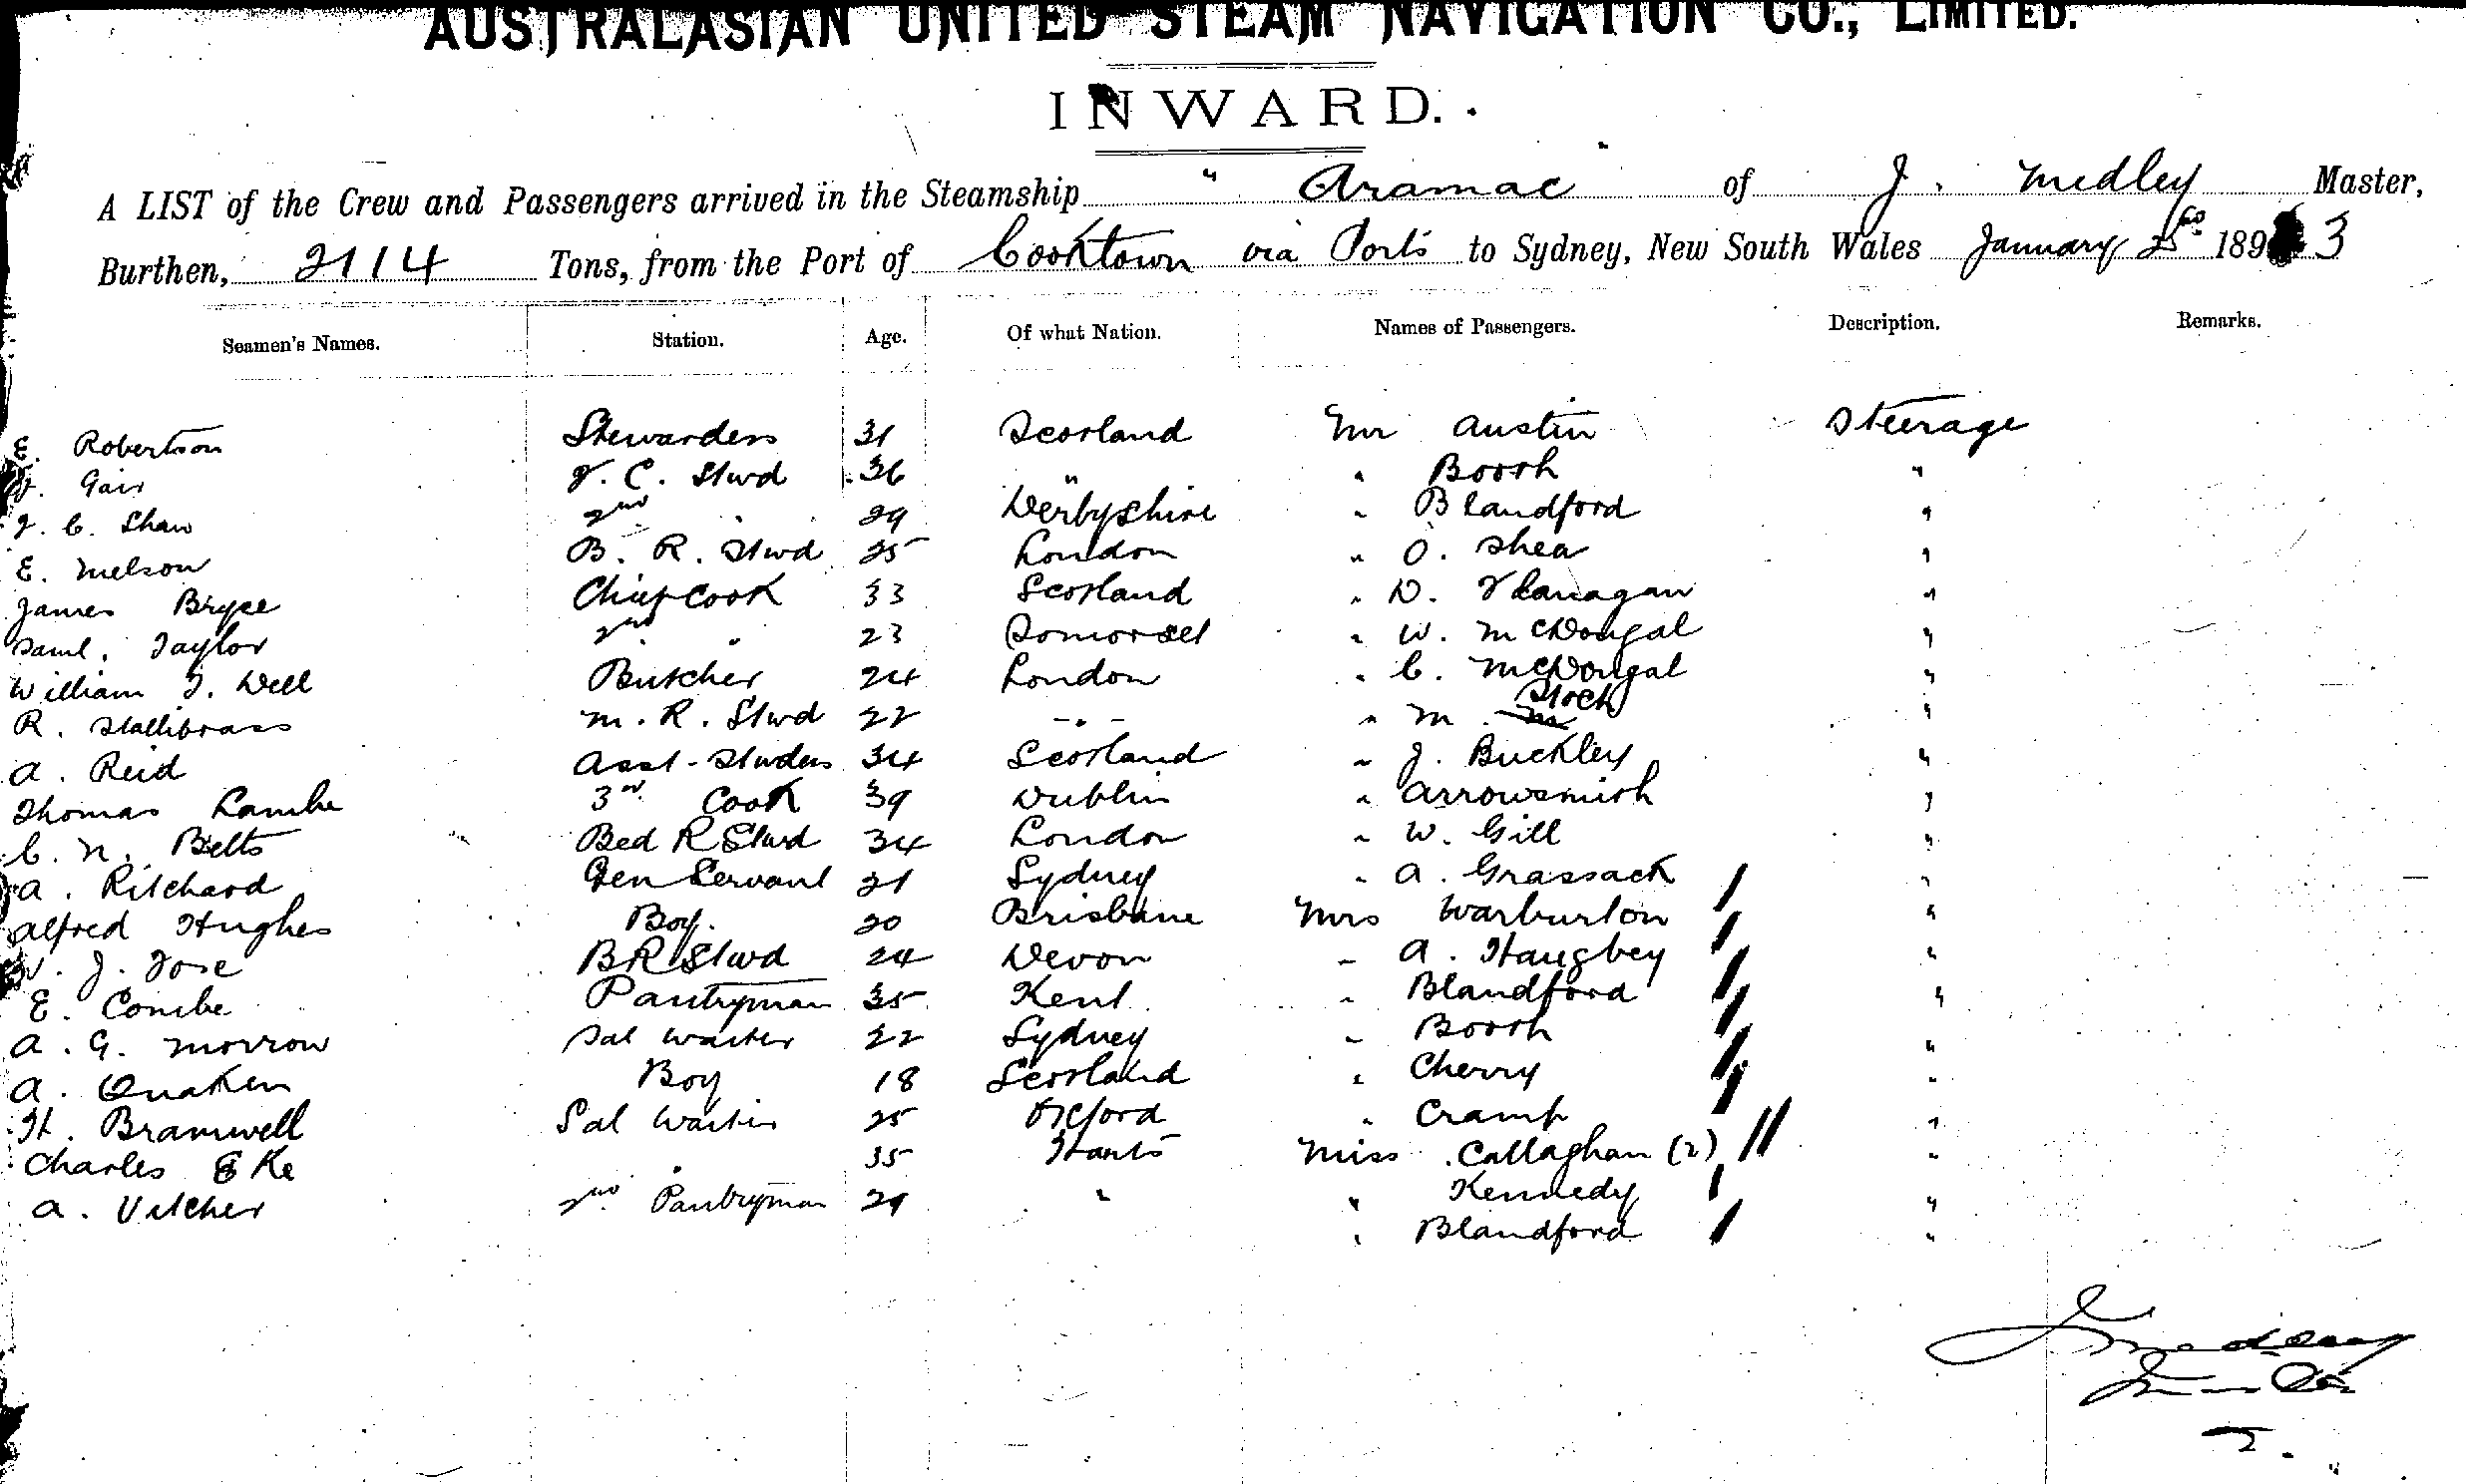 AUSTRALASIAN UNITED STEAM NAVIGATION CO., LIMITED.
INWARD.
A LIST of the Crew and Passengers arrived in the Steamship "Aramac" of J. Medley Master,
Burthen, 2114 Tons, from the Port of Cooktown via Ports to Sydney, New South Wales January 25th 1893
Seamen's Names. Station. Age. Of what Nation. Names of Passengers. Description. Remarks.
E. Robertson Stewardess 31 Scotland Mr Austin Steerage
Gair F. C. Stwd 36 " " Booth "
J. C. Shaw 2nd " 29 Derbyshire " Blandford "
E. Melson B. R. Stwd 25 London " O. Shea "
James Bryce Chief Cook 33 Scotland " D. Flanagan "
Saml. Taylor 2nd " 23 Somerset " W. McDougal "
William J. Dell Butcher 24 London " C. McDougal "
R. Stallibrass M. R. Stwd 22 -"- " M. Stock "
A. Reid Asst-Stwdess 34 Scotland " J. Buckley "
Thomas Lambe 3rd Cook 39 Dublin " Arrowsmith "
C. N. Betts Bed R Stwd 34 London " W. Gill "
A. Ritchard Gen Servant 21 Sydney " A. Grassack "
Alfred Hughes Boy 20 Brisbane Mrs Warburton "
J. Tose B R Stwd 24 Devon " A. Haugbey "
E. Combe Pantryman 35 Kent " Blandford "
A. G. Morrow Sal Waiter 22 Sydney " Booth "
A. Quaken Boy 18 Scotland " Cherry "
H. Bramwell Sal Waiter 25 Oxford " Cramp "
Charles Eke " 35 Hants Miss Callaghan (2) "
A. Vilcher 2nd Pantryman 29 " " Kennedy "
" Blandford "
J Medley